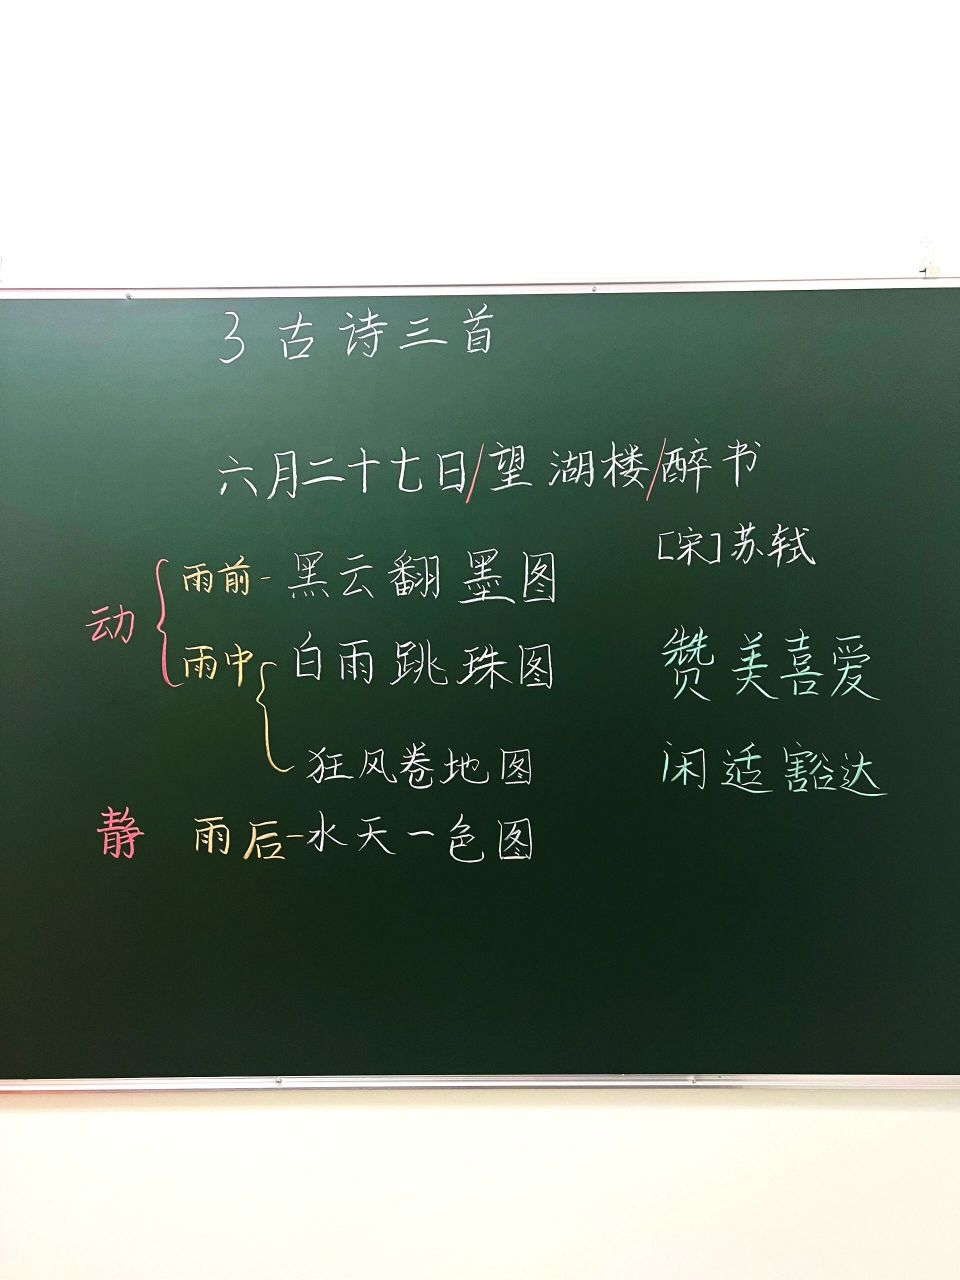 3 古诗三首
六月二十七日/望湖楼/醉书
[宋]苏轼
动
雨前-黑云翻墨图
雨中 白雨跳珠图
狂风卷地图
静 雨后-水天一色图
赞美喜爱
闲适豁达